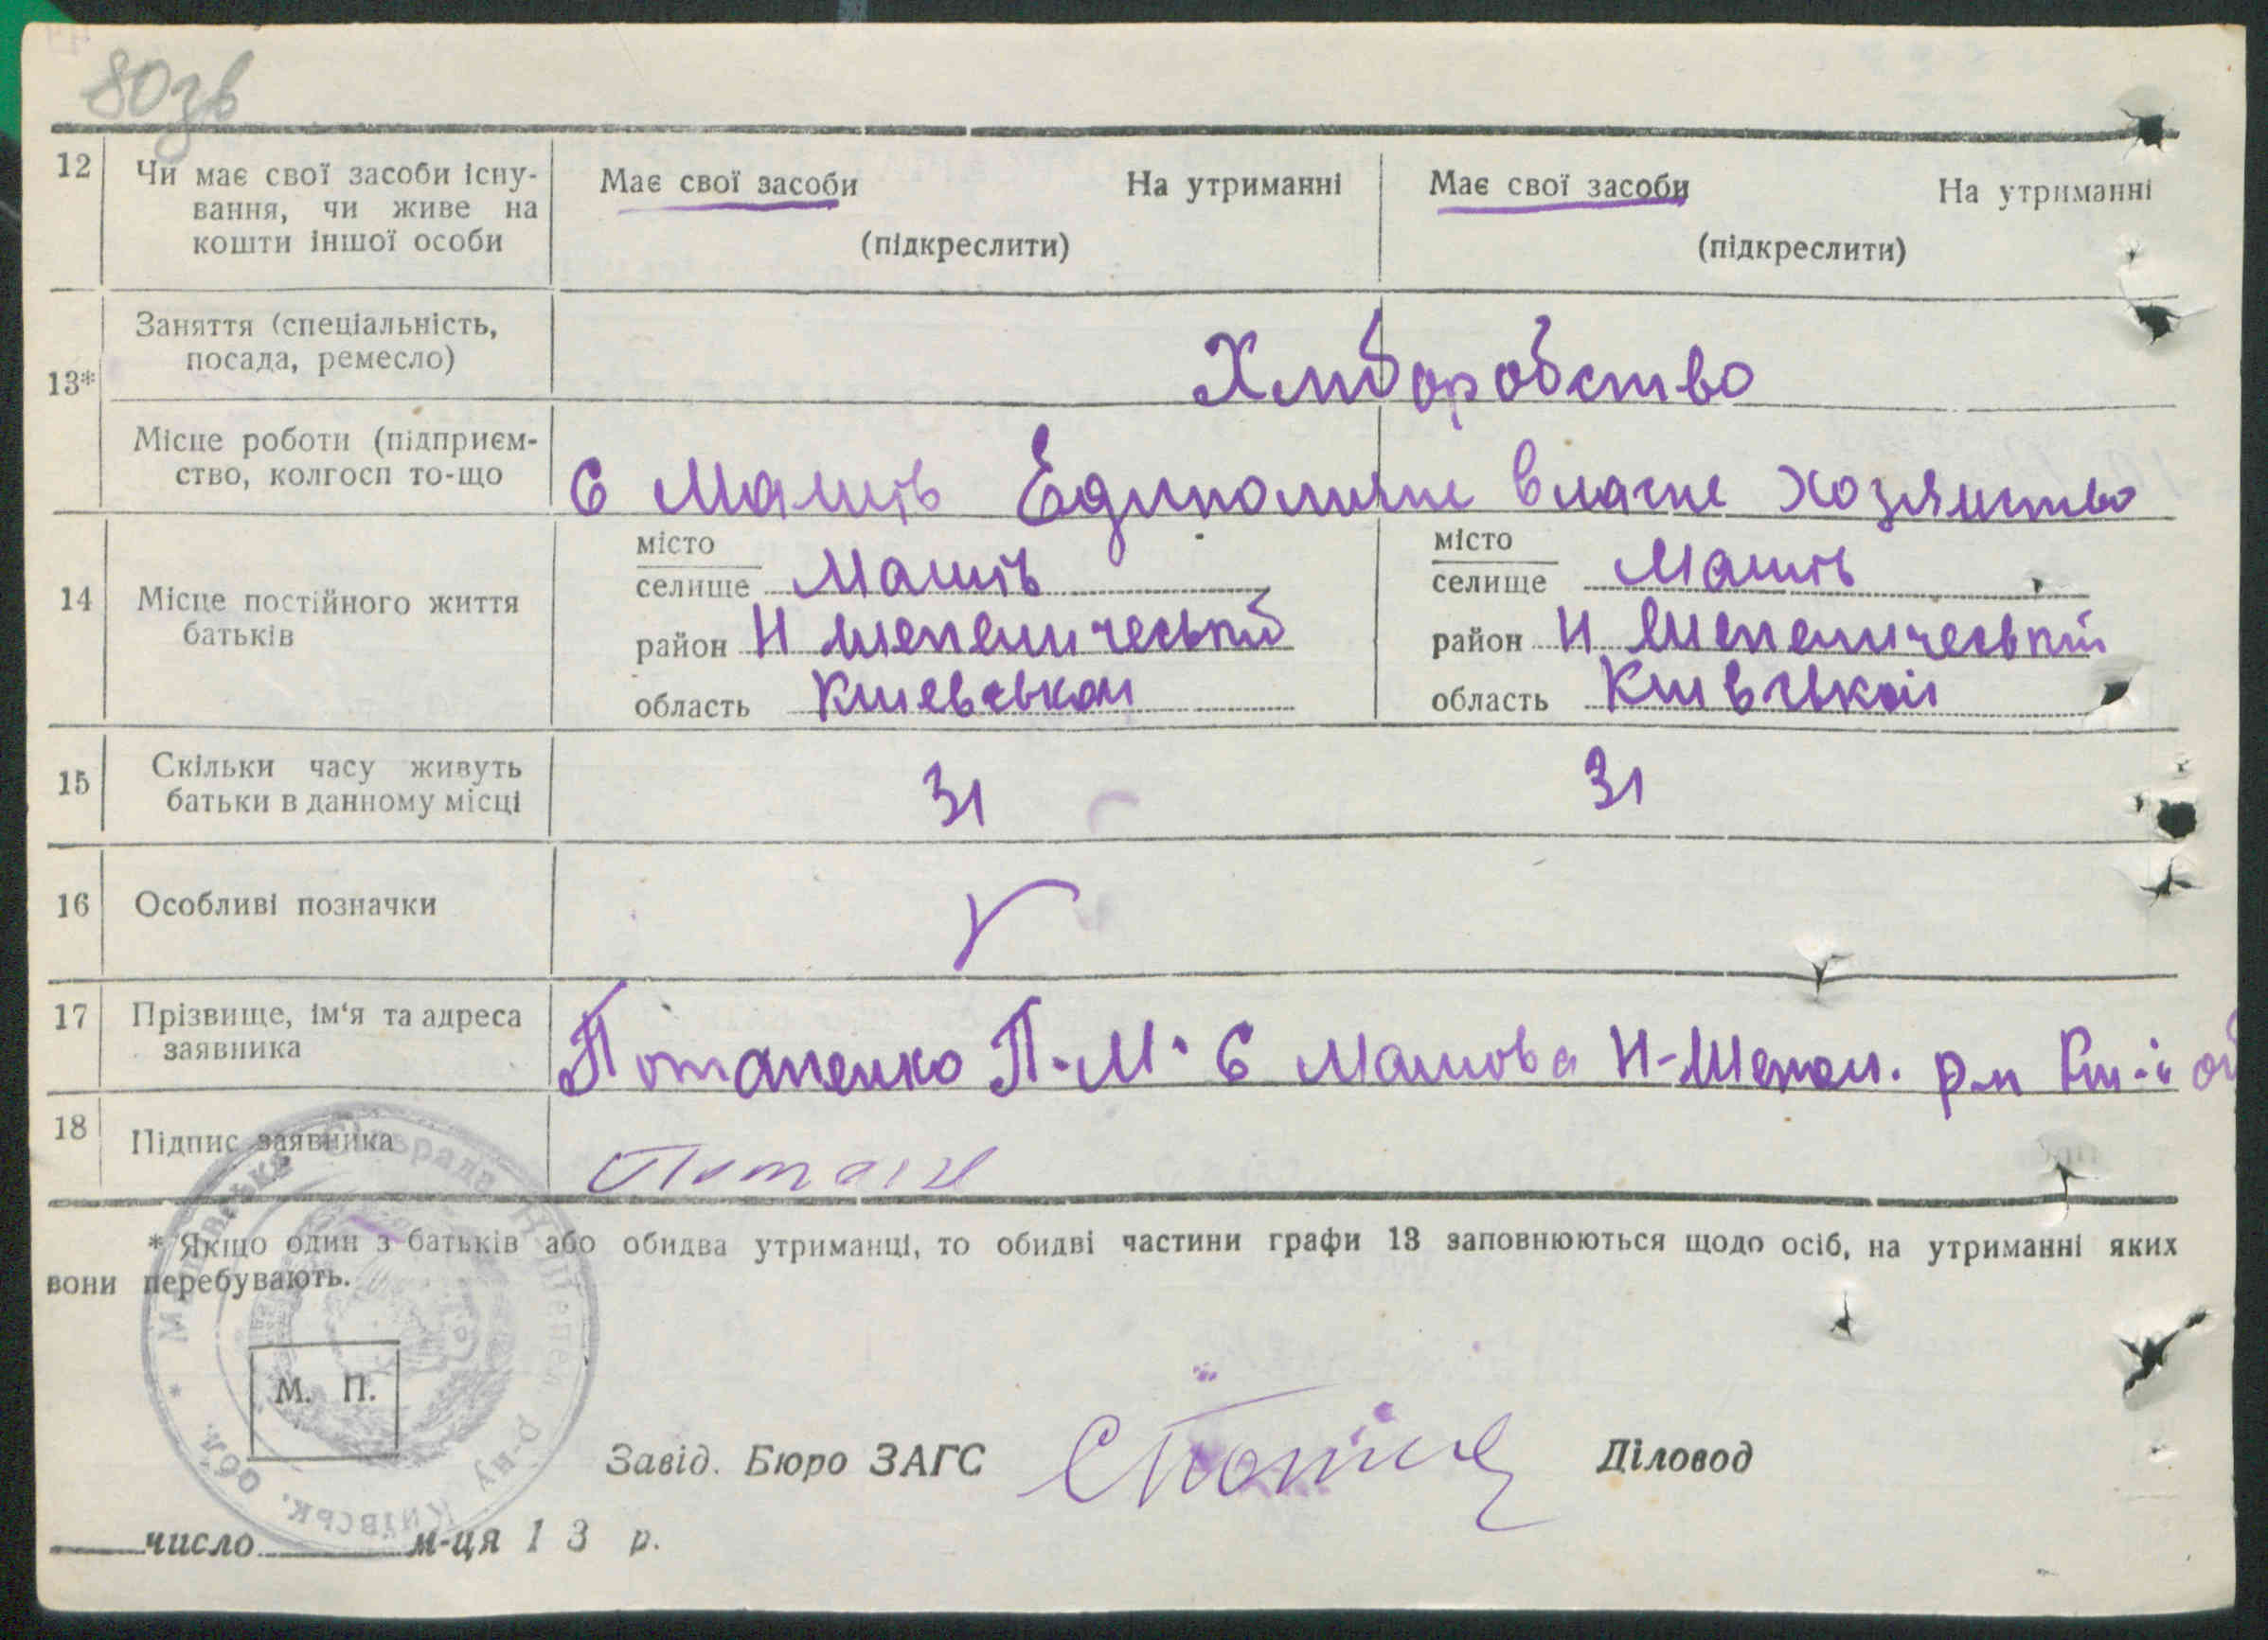 80зв
12 Чи має свої засоби існу-
вання, чи живе на
кошти іншої особи
Має свої засоби На утриманні
(підкреслити)
Має свої засоби На утриманні
(підкреслити)
13* Заняття (спеціальність,
посада, ремесло)
Хліборобство
Місце роботи (підприєм-
ство, колгосп то-що
С Машів Единоличне власне хозяиство
14 Місце постійного життя
батьків
місто
селище Машів
район Н Шепеличеський
область Киевськои
місто
селище Машів
район Н Шепеличеський
область Киевськоі
15 Скільки часу живуть
батьки в данному місці
31 31
16 Особливі позначки
17 Прізвище, ім‘я та адреса
заявника
Потапенко П. М. С Машова Н-Шепел. р-н
18 Підпис заявника
* Якщо один з батьків або обидва утриманці, то обидві частини графи 13 заповнюються щодо осіб, на утриманні яких
вони перебувають.
М. П.
Завід. Бюро ЗАГС Діловод
число м-ця 1 3 р.